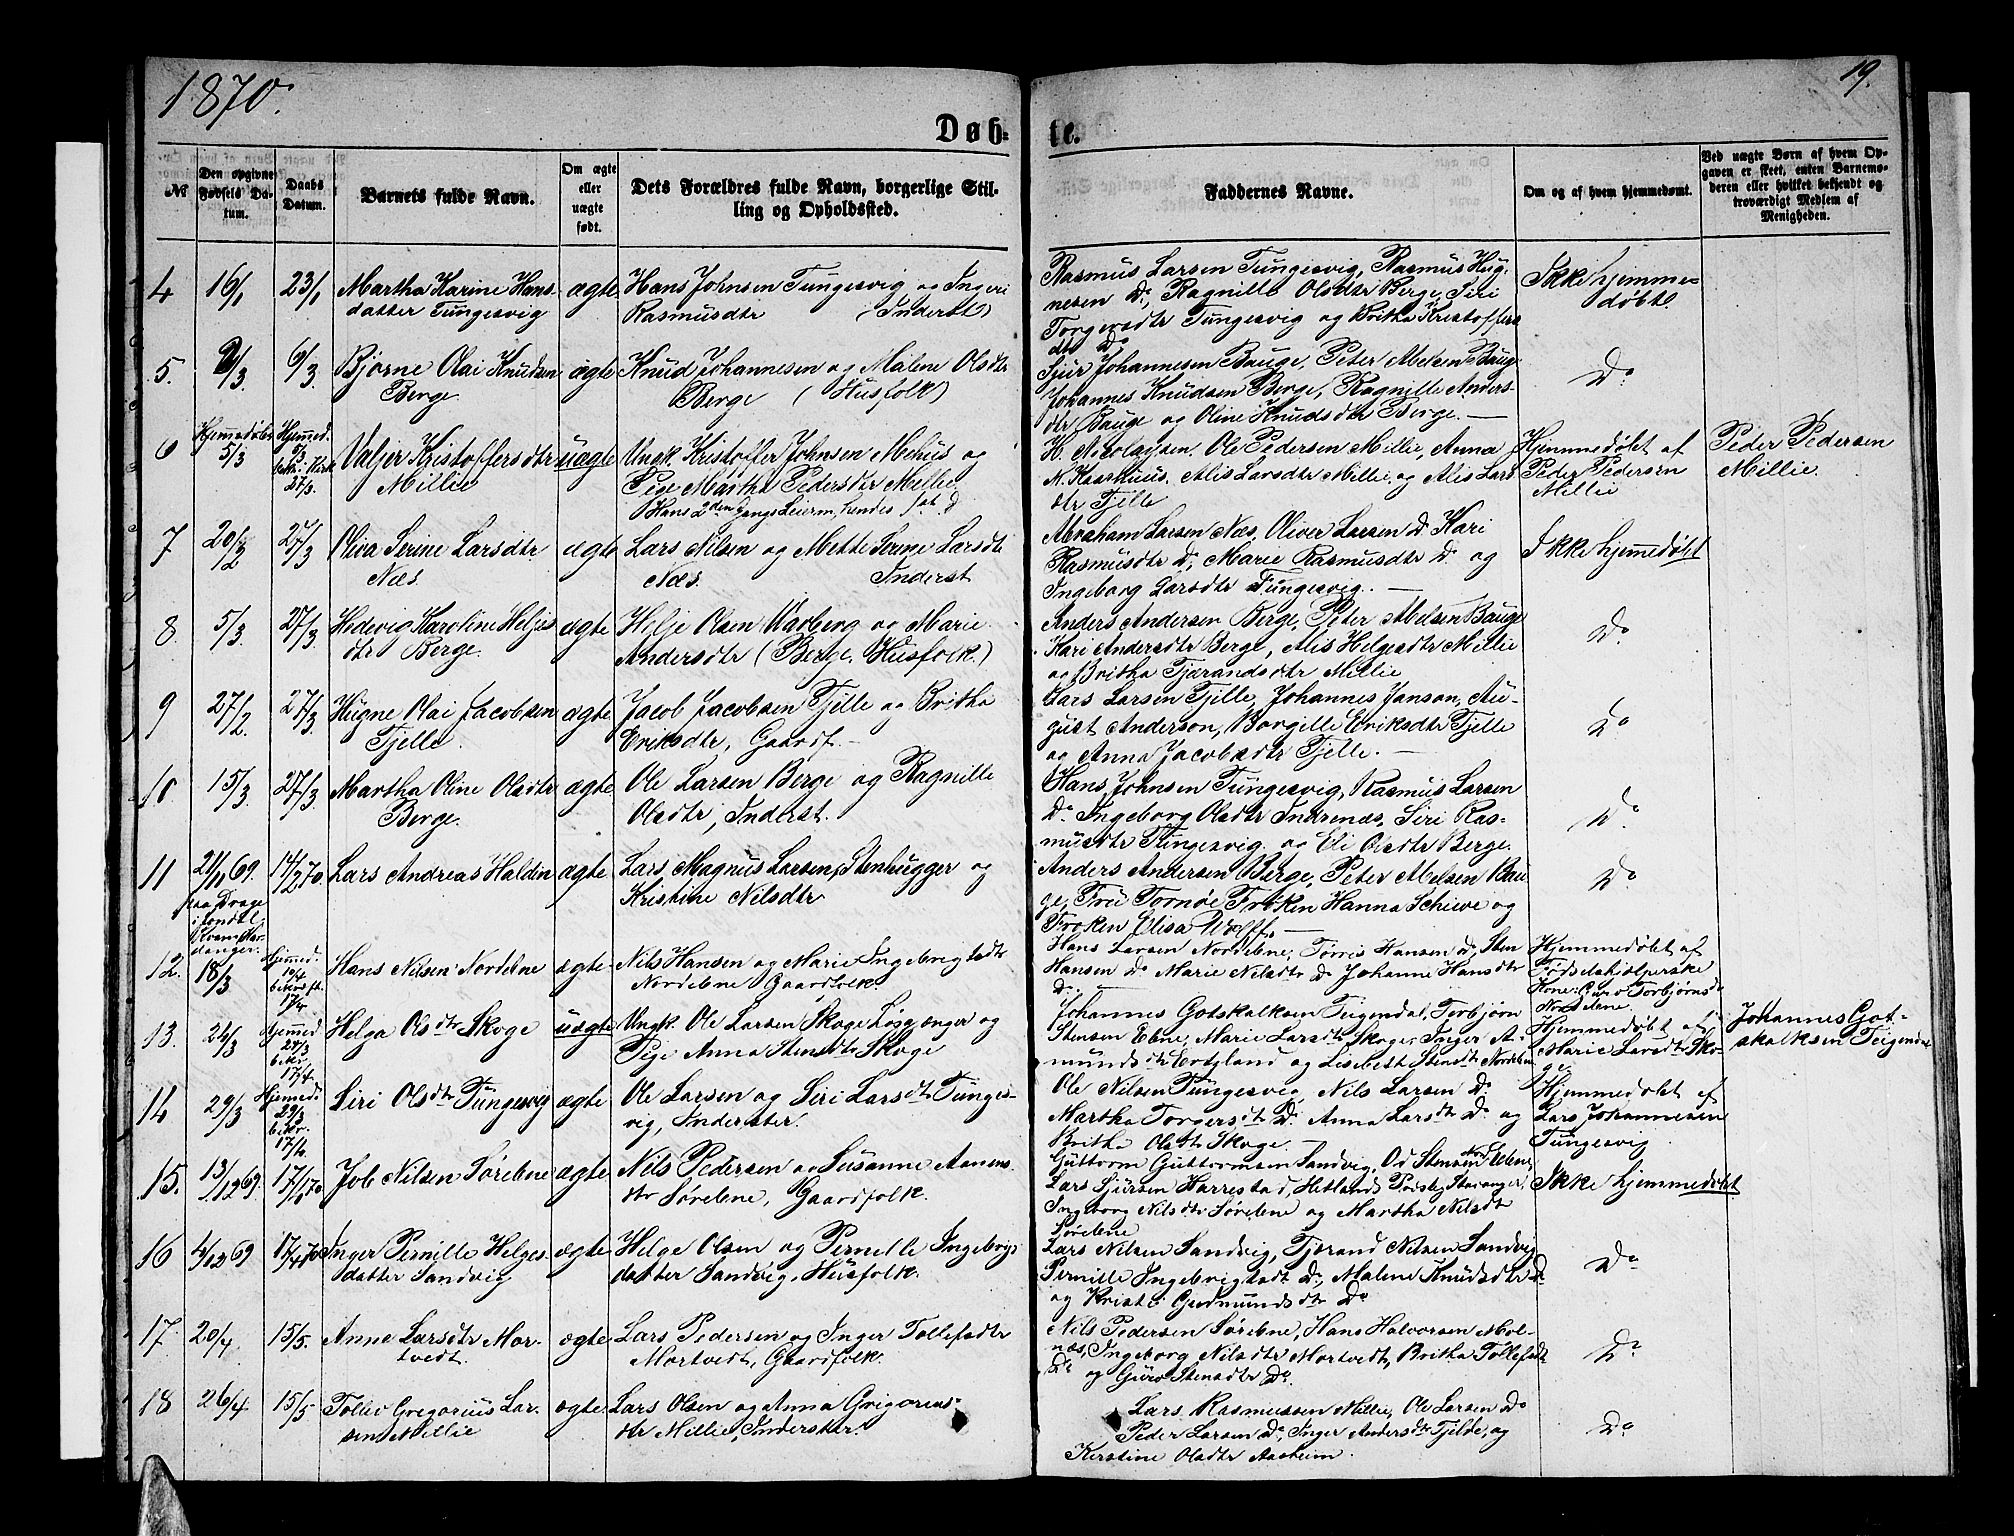 1870.
19.
Døb-
te.
№
Den opgivne Fødsels Datum.
Daabs Datum.
Barnets fulde Navn.
Om ægte eller uægte født.
Dets Forældres fulde Navn, borgerlige Stilling og Opholdssted.
Faddernes Navne.
Om og af hvem hjemmedøbt.
Ved uægte Børn af hvem Opgaven er skeet, enten Barnemoderen eller hvilket bekjendt og troværdigt Medlem af Menigheden.
4 16/1 23/1 Martha Karine Hans-
datter Tungesvig
ægte
Hans Johnsen Tungesvig og Ingeri
Rasmusdtr (Inderst)
Rasmus Larsen Tungesvig, Rasmus Hug-
nesen Do, Ragnille Olsdtr Berge, Siri
Torgersdtr Tungesvig og Britha Kristoffers
dtr Do
Ikke hjemme-
døbt.
5. 2/3 6/3 Bjørne Olai Knudsen
Berge
ægte
Knud Johannesen og Malene Olsdtr
Berge (Husfolk)
Sjur Johannesen Bauge, Peter Abelsen Bauge
Johannes Knudsen Berge, Ragnille Anders-
dtr Bauge og Oline Knudsdtr Berge.
Do
6 Hjemmedøbt
5/3
Hjemmed.
6/3
bekr. i Kirk
27/3.
Valjer Kristoffersdtr
Millie
uægte
Ungk. Kristoffer Johnsen Mehus og
Pige Martha Pedersdtr Millie
(Hans 2den Gangs Leierm, hendes 1ste Do
H. Nicolaysen. Ole Pedersen Millie, Anna
N. Kaashuus. Alis Larsdtr Millie og Alis Lars
dtr Tjelle
Hjemmedøbt af
Peder Pedersen
Millie
Peder Pedersen
Millie.
7 20/2 27/3 Oliva Serine Larsdtr
Næs.
ægte
Lars Nilsen og Mette Serine Larsdtr
Næs. Inderst
Abraham Larsen Næs, Oliver Larsen Do Kari
Rasmusdtr Do, Marie Rasmusdtr Do og
Ingeborg Larsdtr Tungesvig.
Ikke hjemmedøbt
8. 5/3 27/3. Hedevig Karoline Heljes
dtr Berge.
ægte
Helje Olsen Warberg og Marie
Andersdtr (Berge. Husfolk.)
Anders Andersen Berge, Peter Abelsen Bauge
Kari Andersdtr Berge, Alis Helgesdtr Millie
og Britha Tjerandsdtr Millie
Do
9 27/2. 27/3. Hugne Olai Jacobsen
Tjelle
ægte
Jacob Jacobsen Tjelle og Britha
Eriksdtr, Gaardf.
Lars Larsen Tjelle, Johannes Janson, Au-
gust Anderson, Borgille Eriksdtr Tjelle
og Anna Jacobsdtr Tjelle.
Do
10 15/3. 27/3 Martha Oline Olsdtr
Berge.
ægte
Ole Larsen Berge og Ragnille
Olsdtr, Inderst.
Hans Johnsen Tungesvig, Rasmus Larsen
Do Ingeborg Olsdtr Indrenæs, Siri Ras-
musdtr Tungesvig og Eli Olsdtr Berge.
Do
11 21/11 69.
paa Drage
i Jondal.
Kvam Har-
danger.
14/2 70.
Lars Andreas Haldin
ægte
Lars Magnus Larsen, Stenhugger og
Kristine Nilsdtr
Anders Andersen Berge, Peter Abelsen Bau
ge, Fru Tornøe Frøken Hanna Schiwe og
Frøken Elisa Wolff.
Do
12. 18/3
Hjemmed.
10/4
bekræft.
17/4
Hans Nilsen Nordebne
ægte
Nils Hansen og Marie Ingebrigtsdtr
Nordebne Gaardfolk.
Hans Larsen Nordebne, Tørris Hansen Do, Sten
Hansen Do Marie Nilsdtr Do Johanne Hansdtr
Do
Hjemmedøbt af
Fødselshjelperske
Kone Guro Torbjørnsd
Nordebne.
13. 24/3
Hjemmed
24/3
bekr.
17/4.
Helga Olsdtr Skoge
uægte
Ungk. Ole Larsen Skoge Løsgjænger og
Pige Anna Stensdtr Skoge
Johannes Gotskalksen Teigendal, Torbjørn
Stensen Ebne, Marie Larsdtr Skoge, Inger A-
mundsdtr Erdgland og Lisebeth Stensdtr Nordebne
Hjemmedøbt af
Marie Larsdtr Sko-
ge
Johannes Got-
skalksen Teigendal
14 29/3
Hjemmed:
29/3
bekr.
17/4.
Siri Olsdtr Tungesvig
ægte
Ole Larsen og Siri Larsdtr Tunges-
vig, Inderster.
Ole Nilsen Tungesvig, Nils Larsen Do
Martha Torgersdtr Do. Anna Larsdtr Do og
Britha Olsdtr Skoge
Hjemmedøbt af
Lars Johannesen
Tungesvig
15. 13/12 69. 17/4 70 Job Nilsen Sørebne
ægte
Nils Pedersen og Susanne Aanens-
dtr Sørebne, Gaardfolk.
Guttorm Guttormsen Sandvig, Od Stensen Nord Ebne,
Lars Sjursen Harrestad, Hetlands Prstgj Stavanger,
Ingeborg Nilsdtr Sørebne og Martha Nilsdt
Sørebne
Ikke hjemmedøbt
16 4/12 69 17/4 70 Inger Pernille Helges-
datter Sandvig
ægte
Helge Olsen og Pernille Ingebrigs
datter Sandvig, Husfolk.
Lars Nilsen Sandvig, Tjerand Nilsen Sandvig
Pernille Ingebrigtsdt Do, Malene Knudsdtr Do
og Kristi Gudmundsdtr Do
Do
17 20/4 15/5. Anne Larsdtr Mor-
tvedt.
ægte
Lars Pedersen og Inger Tollefsdtr
Mortvedt, Gaardfolk.
Nils Pedersen Sørebne, Hans Halvorsen Mol-
næs, Ingeborg Nilsdtr Mortvedt, Britha Tollefsdtr
Do og Guro Stensdtr Do.
Do
18 26/4. 15/5 Tollev Gregorius Lar-
sen Millie
ægte
Lars Olsen og Anna Grigorius-
dtr Millie, Inderster.
Lars Rasmussen Millie, Ole Larsen Do
Peder Larsen Do, Inger Andersdtr Tjelde, og
Kerstine Olsdtr Aasheim.
Do